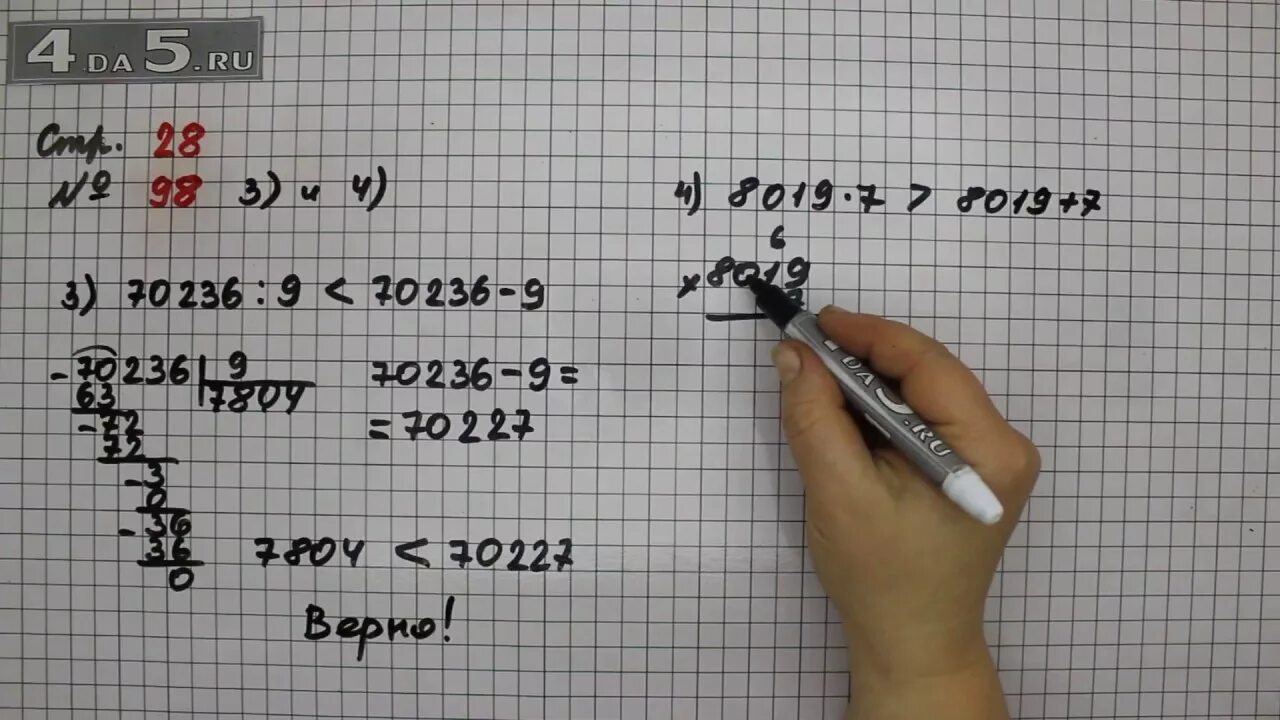 4DA5.RU
Стр. 28
№ 98 3) и 4)
3) 70236 : 9 < 70236 - 9
- 70236 | 9
63 7804
- 72
72
- 3
0
- 36
36
0
70236 - 9 =
= 70227
7804 < 70227
Верно!
4) 8019 · 7 > 8019 + 7
6
× 8019
7
DA5.RU